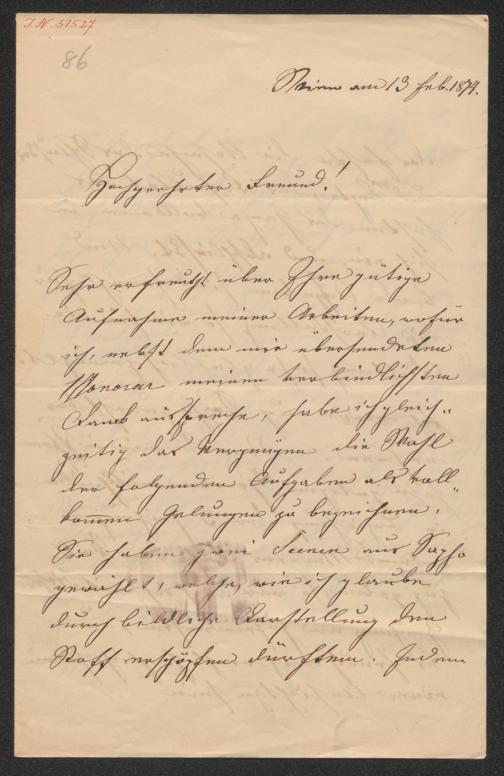 I.N. 51527
86
Wien am 13 Feb. 1874.
Hochgeehrter Freund!
Sehr erfreut über Ihre gütige
Aufnahme meiner Arbeiten, wofür
ich, nebst dem mir übersendeten
Honorar meinen verbindlichsten
Dank ausspreche, habe ich gleich-
zeitig das Vergnügen die Wahl
der folgenden Aufgaben als voll-
kommen Gelungen zu bezeichnen.
Sie haben zwei Scenen aus Sapho
gewählt, welche, wie ich glaube
durch bildliche Darstellung den
Stoff erschöpfen dürften. Indem